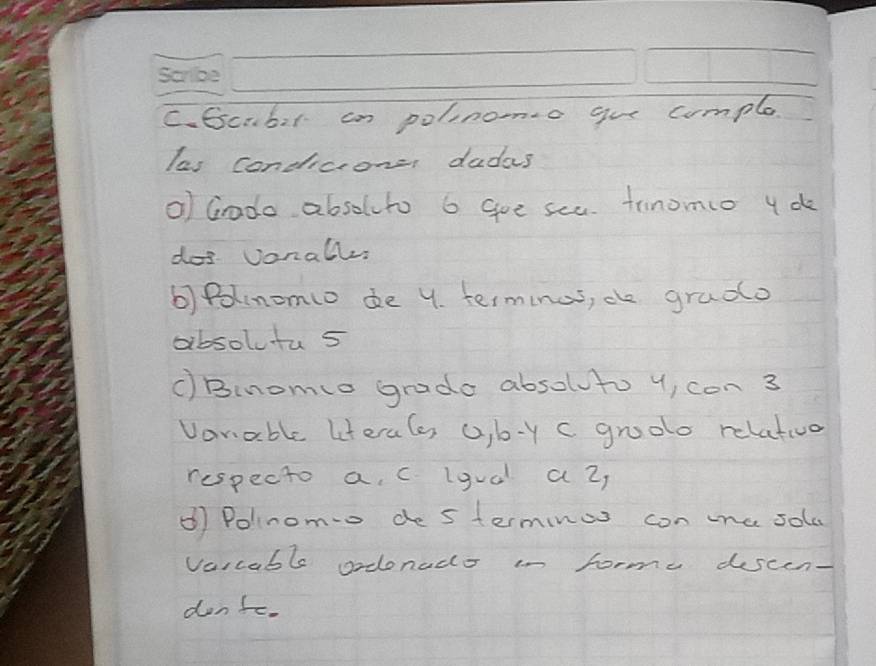 Scribe
C. Escribir un polinomio que cumpla
las condiciones dadas
a) Grado absoluto 6 que sea trinomio y de
dos variables
b) Polinomio de 4 terminos, de grado
absoluto 5
c) Binomio grado absoluto 4, con 3
Variable literales a, b y c grado relativo
respecto a, c igual a 2,
d) Polinomio de 5 terminos con una sola
variable ordenado en forma descen-
dente.